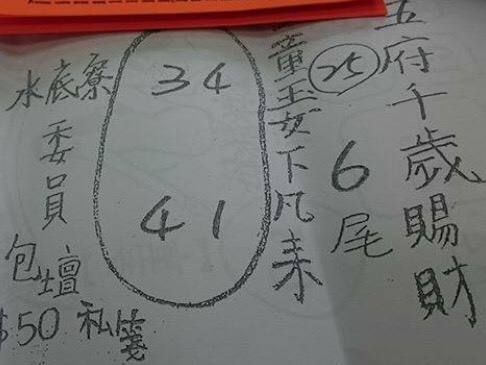 五府千歲賜財
25
6尾
童玉女下凡來
34
41
水底寮
委員
包壇
$50 私箋